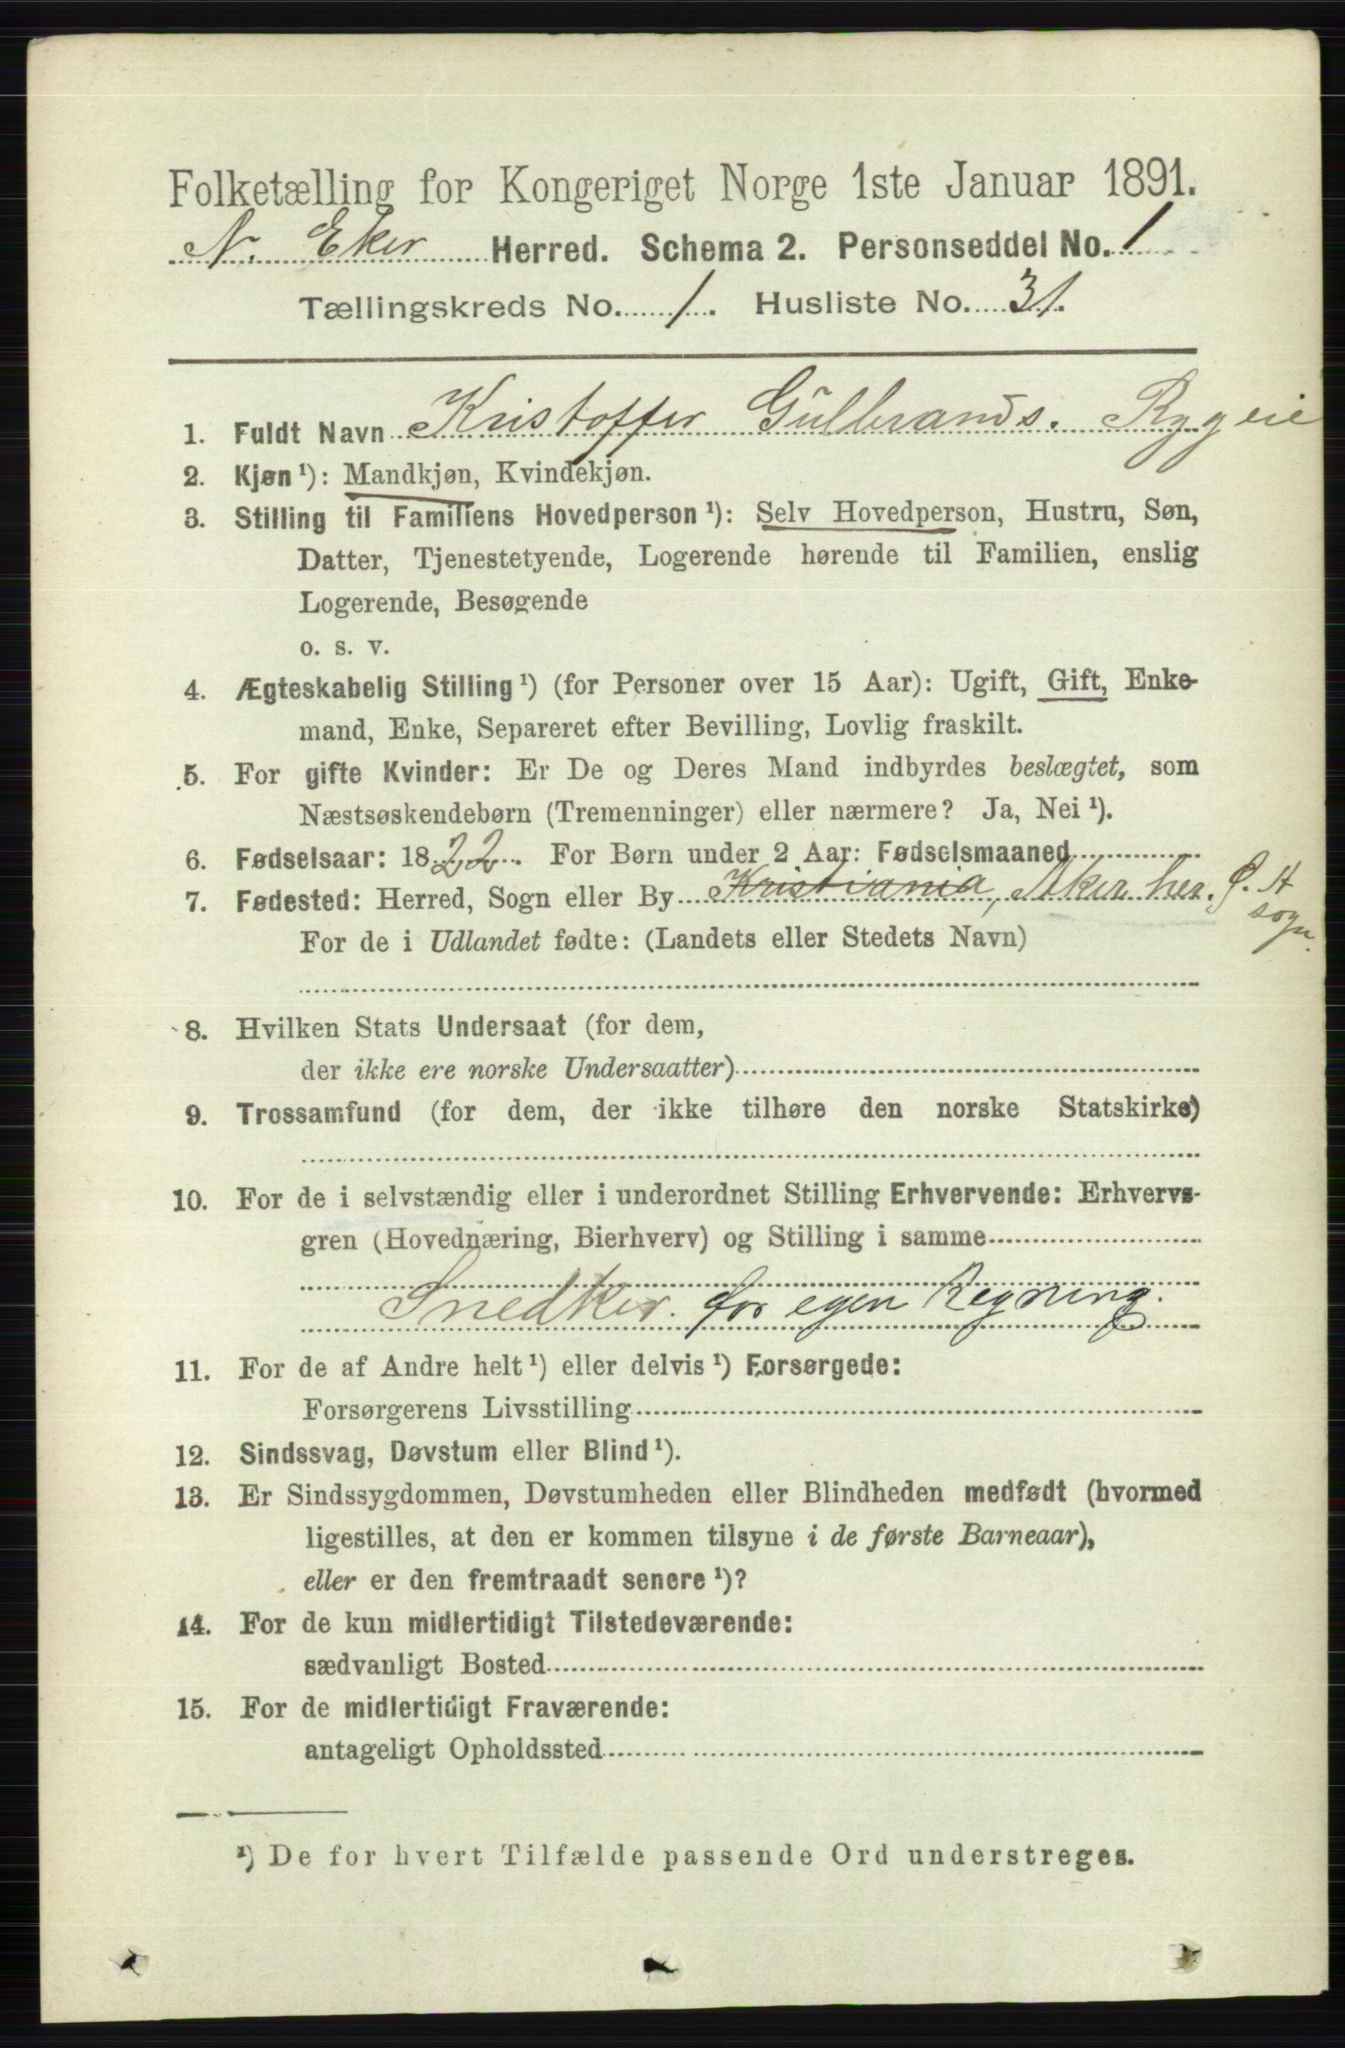 Folketælling for Kongeriget Norge 1ste Januar 1891.
N. Eker Herred. Schema 2. Personseddel No. 1
Tællingskreds No. 1. Husliste No. 31.
1. Fuldt Navn Kristoffer Gulbrands.
2. Kjøn ¹): Mandkjøn, Kvindekjøn.
3. Stilling til Familiens Hovedperson ¹): Selv Hovedperson, Hustru, Søn,
Datter, Tjenestetyende, Logerende hørende til Familien, enslig
Logerende, Besøgende
o. s. v.
4. Ægteskabelig Stilling ¹) (for Personer over 15 Aar): Ugift, Gift, Enke-
mand, Enke, Separeret efter Bevilling, Lovlig fraskilt.
5. For gifte Kvinder: Er De og Deres Mand indbyrdes beslægtet, som
Næstsøskendebørn (Tremenninger) eller nærmere? Ja, Nei ¹).
6. Fødselsaar: 1822. For Børn under 2 Aar: Fødselsmaaned
7. Fødested: Herred, Sogn eller By Kristiania, Aker her.
sogn.
For de i Udlandet fødte: (Landets eller Stedets Navn)
8. Hvilken Stats Undersaat (for dem,
der ikke ere norske Undersaatter)
9. Trossamfund (for dem, der ikke tilhøre den norske Statskirke)
10. For de i selvstændig eller i underordnet Stilling Erhvervende: Erhvervs-
gren (Hovednæring, Bierhverv) og Stilling i samme
Snedker. for egen Regning.
11. For de af Andre helt ¹) eller delvis ¹) Forsørgede:
Forsørgerens Livsstilling
12. Sindssvag, Døvstum eller Blind ¹).
13. Er Sindssygdommen, Døvstumheden eller Blindheden medfødt (hvormed
ligestilles, at den er kommen tilsyne i de første Barneaar),
eller er den fremtraadt senere ¹)?
14. For de kun midlertidigt Tilstedeværende:
sædvanligt Bosted
15. For de midlertidigt Fraværende:
antageligt Opholdssted
¹) De for hvert Tilfælde passende Ord understreges.